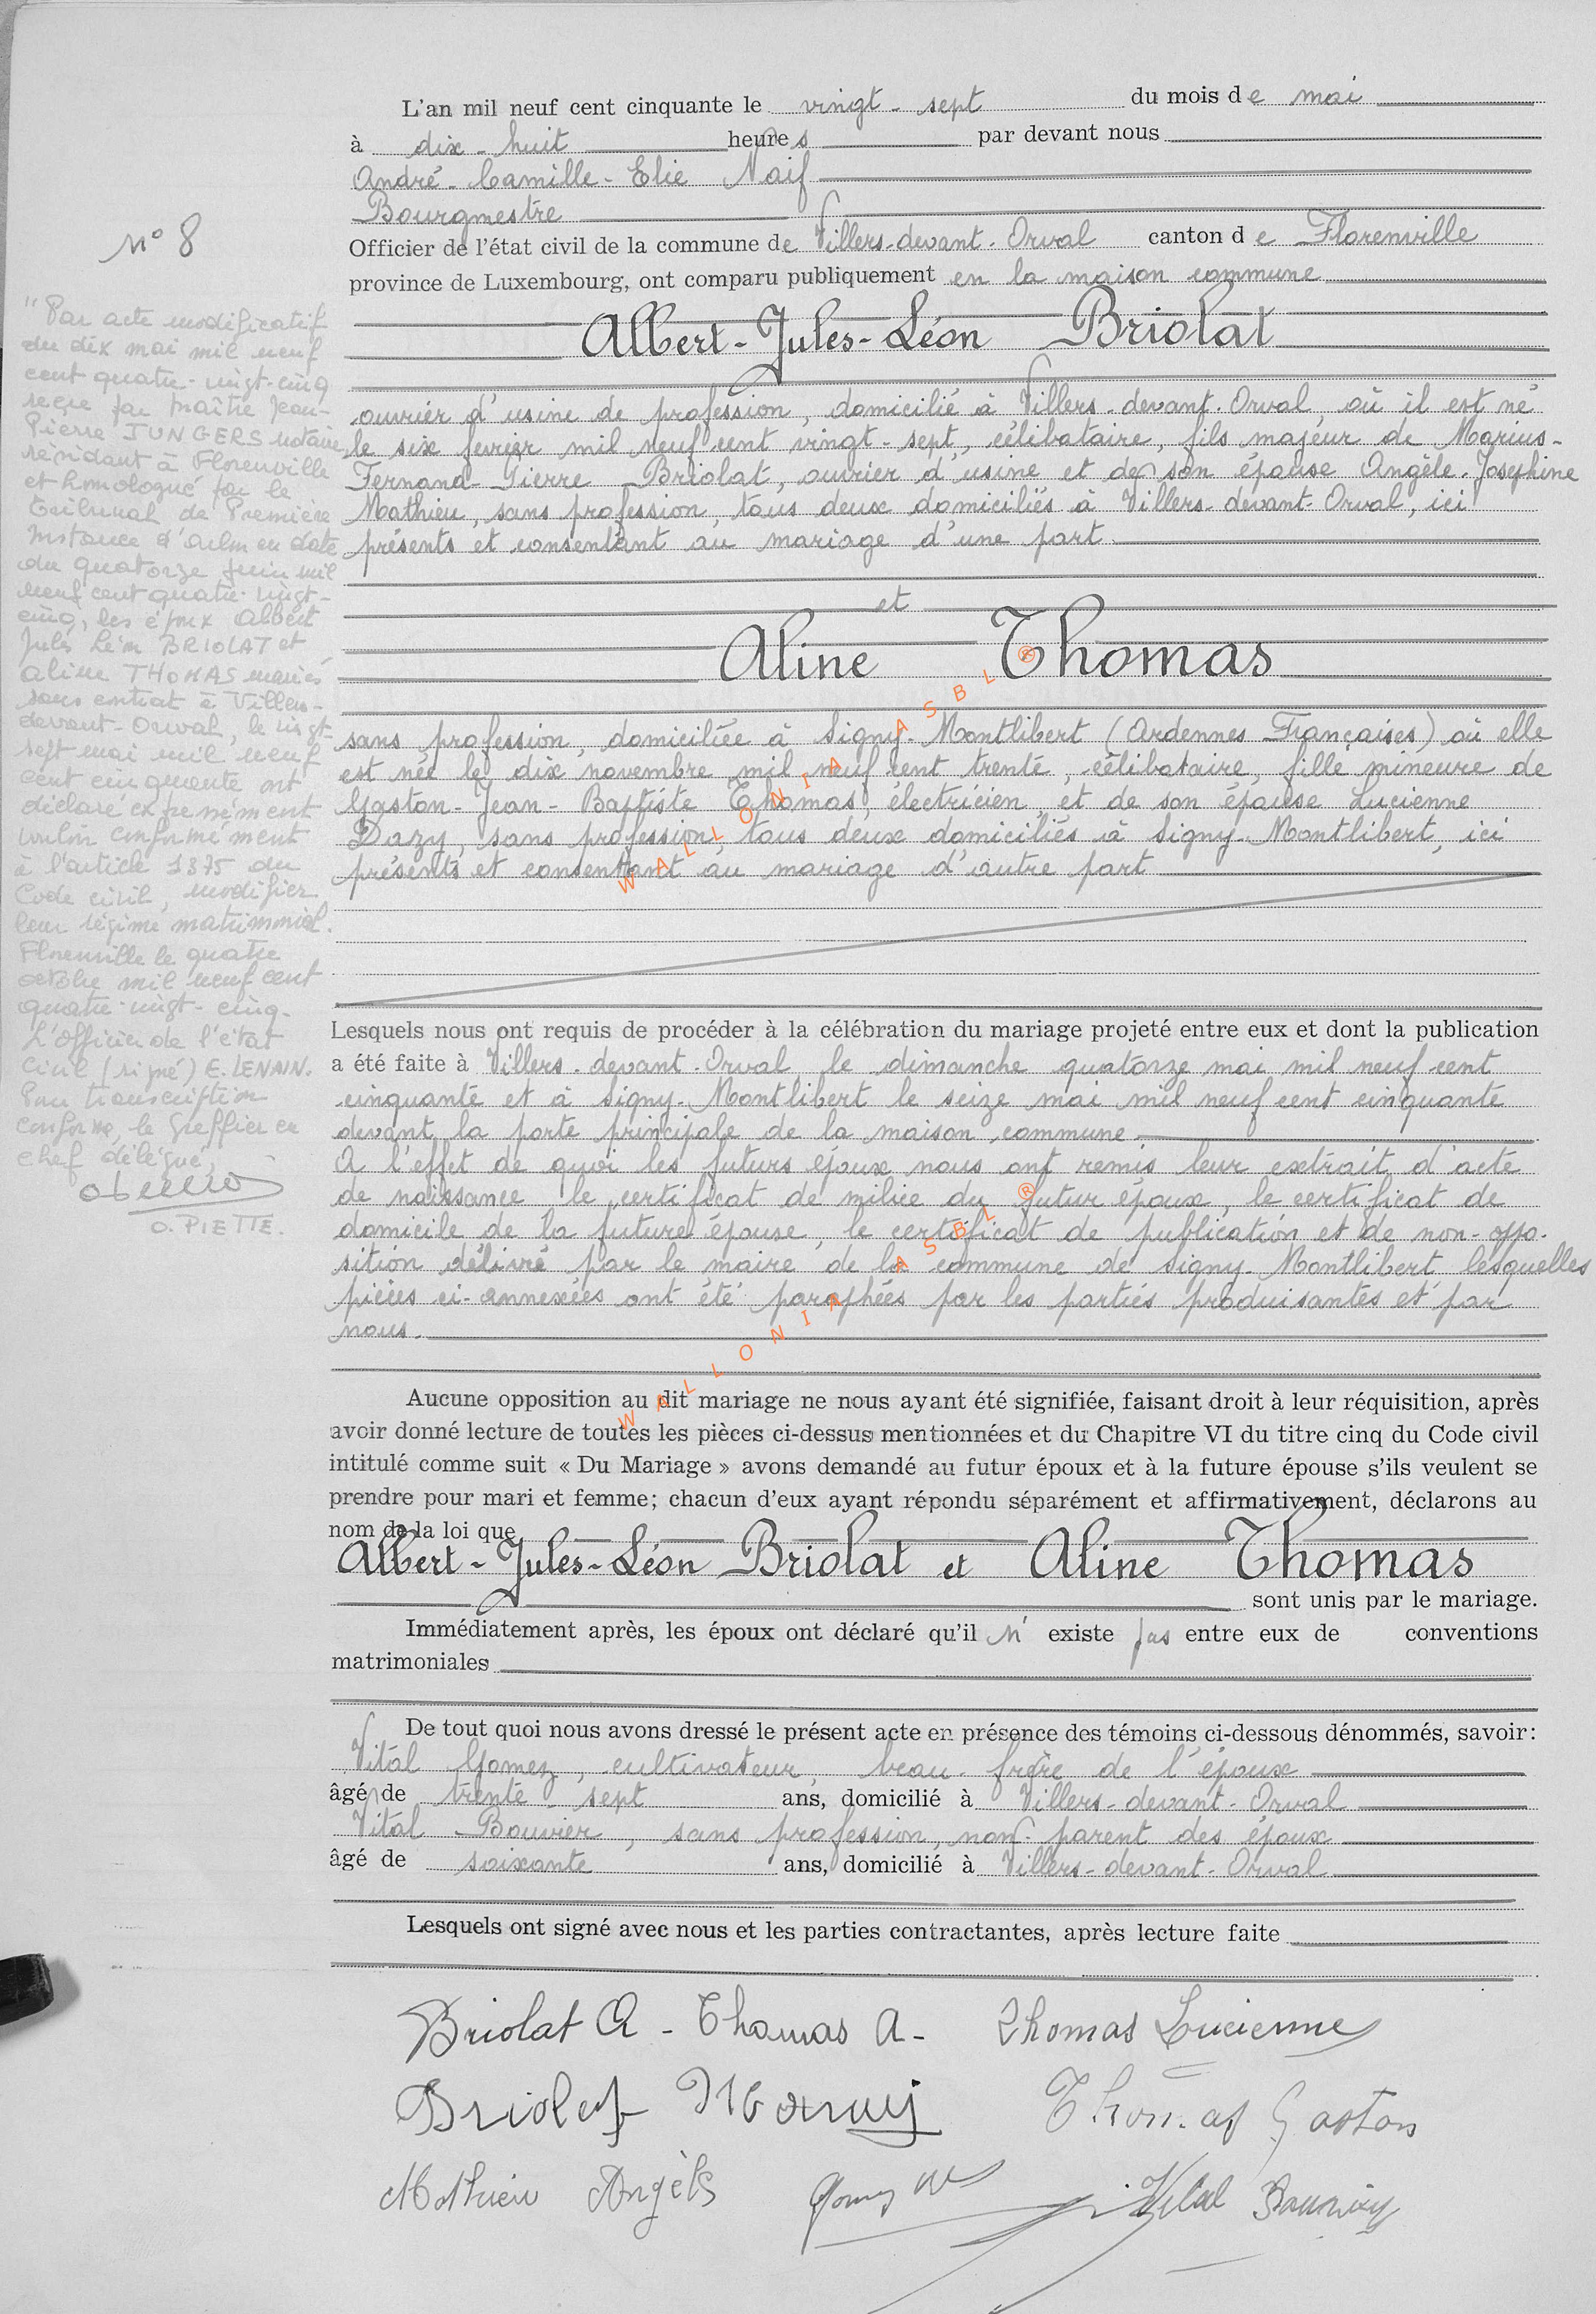 L'an mil neuf cent cinquante le vingt-sept du mois de mai
à dix-huit heures par devant nous
André-Camille-Elie Naif
Bourgmestre
Officier de l'état civil de la commune de Villers-devant-Orval canton de Florenville
province de Luxembourg, ont comparu publiquement en la maison commune
Albert-Jules-Léon Briolat
ouvrier d'usine de profession, domicilié à Villers-devant-Orval, où il est né
le six fevrier mil neuf cent vingt-sept, célibataire, fils majeur de Marius-
Fernand-Pierre Briolat, ouvrier d'usine et de son épouse Angèle-Josephine
Mathieu, sans profession, tous deux domiciliés à Villers-devant-Orval, ici
présents et consentant au mariage d'une part.
et
Aline Thomas
sans profession, domiciliée à Signy-Montlibert (Ardennes Françaises) où elle
est née le dix novembre mil neuf cent trente, célibataire, fille mineure de
Gaston-Jean-Baptiste Thomas, électricien et de son épouse Lucienne
Dazy, sans profession, tous deux domiciliés à Signy-Montlibert, ici
présents et consentant au mariage d'autre part
Lesquels nous ont requis de procéder à la célébration du mariage projeté entre eux et dont la publication
a été faite à Villers-devant-Orval le dimanche quatorze mai mil neuf cent
cinquante et à Signy-Montlibert le seize mai mil neuf cent cinquante
devant la porte principale de la maison commune.
A l'effet de quoi les futurs époux nous ont remis leur extrait d'acte
de naissance le certificat de milice du futur époux, le certificat de
domicile de la future épouse, le certificat de publication et de non-oppo-
sition délivré par le maire de la commune de Signy-Montlibert lesquelles
pièces ci-annexées ont été paraphées par les parties produisantes et par
nous.
Aucune opposition au dit mariage ne nous ayant été signifiée, faisant droit à leur réquisition, après
avoir donné lecture de toutes les pièces ci-dessus mentionnées et du Chapitre VI du titre cinq du Code civil
intitulé comme suit « Du Mariage » avons demandé au futur époux et à la future épouse s'ils veulent se
prendre pour mari et femme; chacun d'eux ayant répondu séparément et affirmativement, déclarons au
nom de la loi que
Albert-Jules-Léon Briolat et Aline Thomas
sont unis par le mariage.
Immédiatement après, les époux ont déclaré qu'il n' existe pas entre eux de conventions
matrimoniales
De tout quoi nous avons dressé le présent acte en présence des témoins ci-dessous dénommés, savoir:
Vital Gomez, cultivateur, beau-frère de l'époux
âgé de trente-sept ans, domicilié à Villers-devant-Orval
Vital Bouvier, sans profession, non-parent des époux
âgé de soixante ans, domicilié à Villers-devant-Orval
Lesquels ont signé avec nous et les parties contractantes, après lecture faite
Briolat A - Thomas A - Thomas Lucienne
Briolat Thomas Gaston
Mathieu Angèle Vital
N° 8
"Par acte modificatif
du dix mai mil neuf
cent quatre-vingt-cinq
reçu par Maître Jean-
Pierre JUNGERS notaire
résidant à Florenville
et homologué par le
Tribunal de Première
Instance d'Arlon en date
du quatorze juin mil
neuf cent quatre-vingt-
cinq, les époux Albert
Jules Léon BRIOLAT et
Aline THOMAS mariés
sans contrat à Villers-
devant-Orval, le vingt-
sept mai mil neuf
cent cinquante ont
déclaré expressément
vouloir conformément
à l'article 1375 du
Code civil, modifier
leur régime matrimonial.
Florenville le quatre
octobre mil neuf cent
quatre-vingt-cinq.
L'officier de l'état
civil (signé) E. LENAIN.
Pour transcription
conforme, le Greffier en
chef délégué,
O. PIETTE.
WALLONIA ASBL ®
WALLONIA ASBL ®